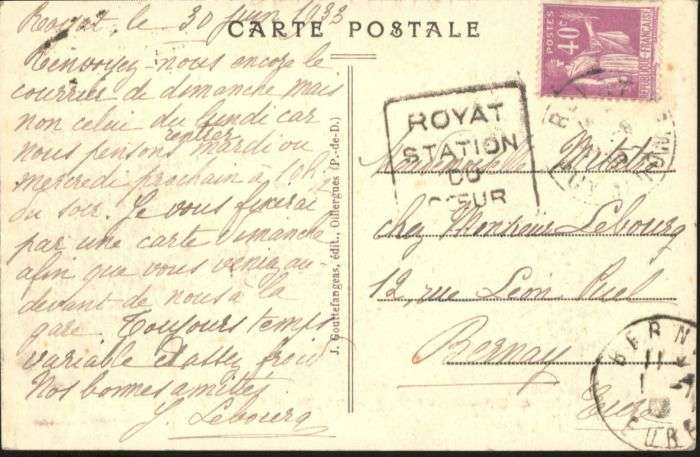 Royat, le 30 Juin 1933
CARTE POSTALE
Renvoyez-nous encore le
courrier de dimanche mais
non celui du lundi car
nous pensons rentrer mardi ou
mercredi prochain à 10h
du soir. Je vous fixerai
par une carte dimanche
afin que vous veniez au-
devant de nous à la
gare. Toujours temps
variable et assez froid
Nos bonnes amitiés
J. Lebourg
J. Gouttefangeas, édit., Olliergues (P.-de-D.)
POSTES
40c
REPUBLIQUE FRANÇAISE
ROYAT
STATION
DU
CŒUR
Mademoiselle
chez Monsieur Lebourg
12, rue Léon
Bernay
Eure
BERN
11
EURE